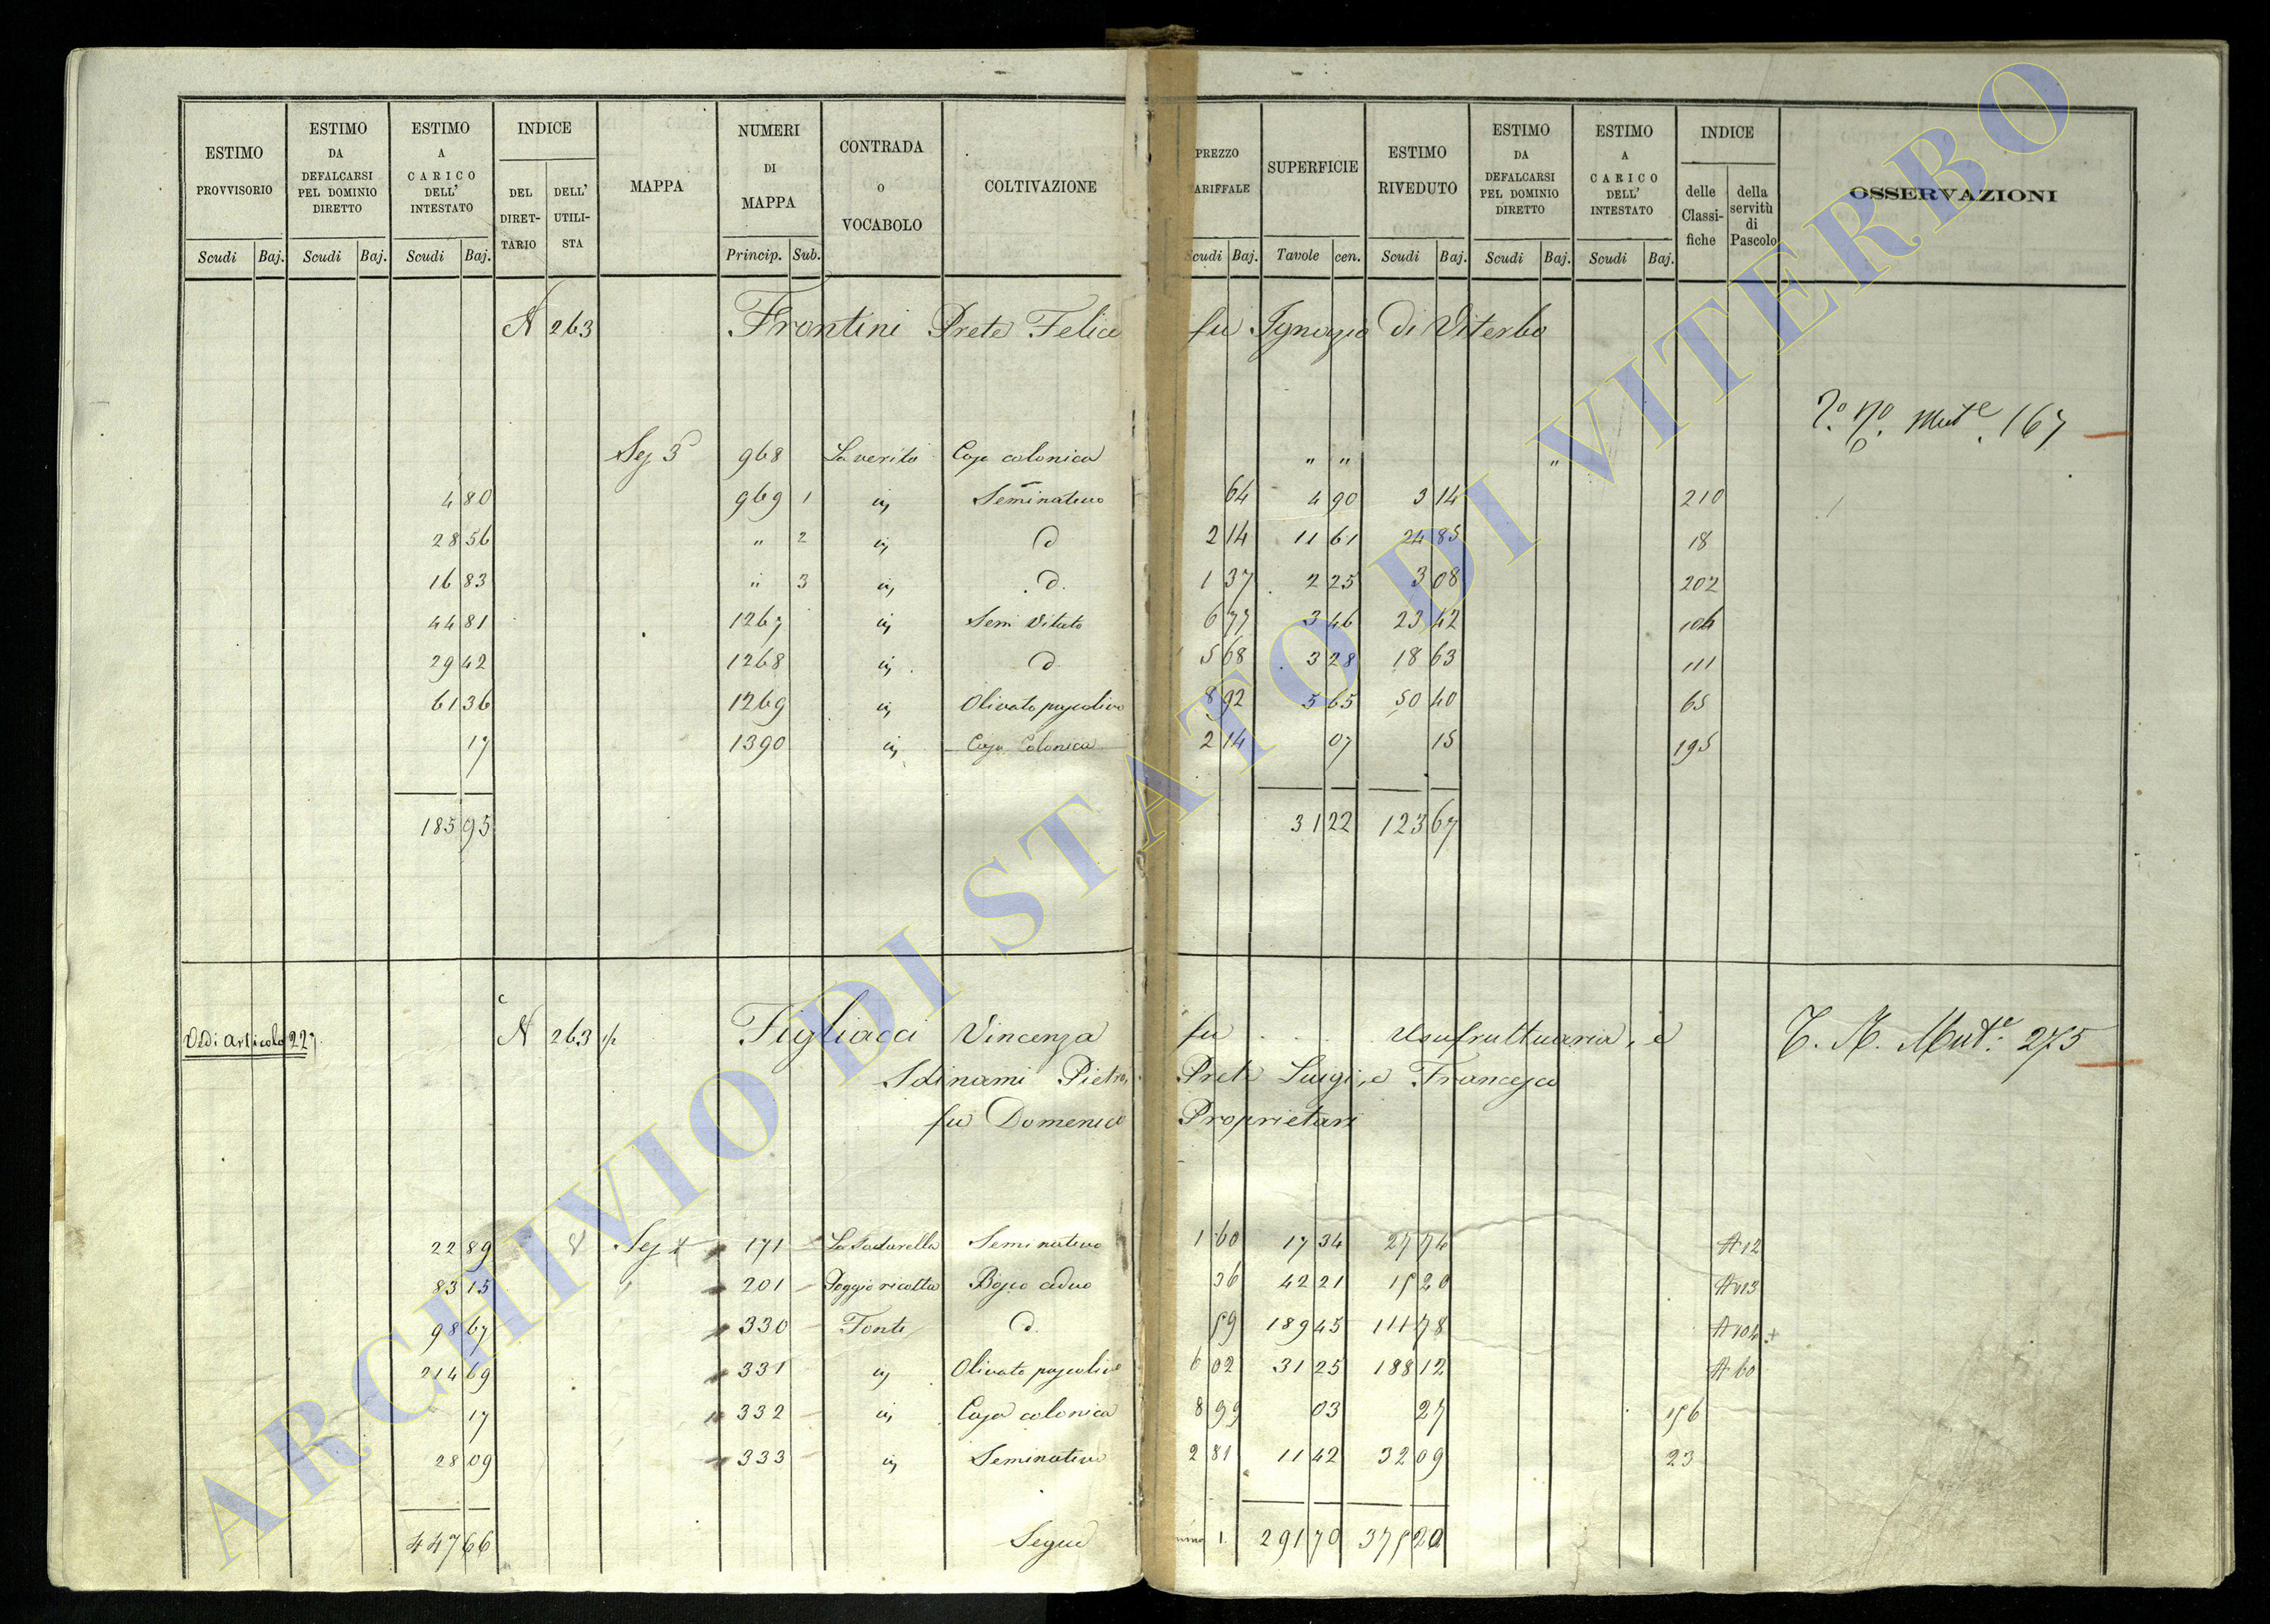 ESTIMO PROVVISORIO Scudi Baj. ESTIMO DA DEFALCARSI PEL DOMINIO DIRETTO Scudi Baj. ESTIMO A CARICO DELL' INTESTATO Scudi Baj. INDICE DEL DIRETTARIO DELL' UTILISTA MAPPA NUMERI DI MAPPA Princip. Sub. CONTRADA O VOCABOLO COLTIVAZIONE PREZZO TARIFFALE Scudi Baj. SUPERFICIE Tavole cen. ESTIMO RIVEDUTO Scudi Baj. ESTIMO DA DEFALCARSI PEL DOMINIO DIRETTO Scudi Baj. ESTIMO A CARICO DELL' INTESTATO Scudi Baj. INDICE delle Classifiche della servitù di Pascolo OSSERVAZIONI
N 263 Frontini Prete Felice fu Ignazio di Viterbo
Mut.e 167
968 Casa colonica " " "
4 80 969 1 Seminativo 64 4 90 3 14 210
28 56 " 2 d 2 14 11 61 24 85 18
16 83 " 3 d. 1 37 2 25 3 08 202
44 81 1267 Sem Vitato 6 77 3 46 23 42 104
29 42 1268 d 5 68 3 28 18 63 111
61 36 1269 Olivato pascolivo 8 92 5 65 50 40 65
17 1390 Casa Colonica 2 14 07 15 195
185 95 31 22 123 67
Vedi articolo 227 N 263 ½ Figliacci Vincenza fu . . . Usufruttuaria, e Mut.e 275
Sdinami Pietro, Prete Luigi, e Francesco
fu Domenico Proprietari
22 89 171 Seminativo 1 60 17 34 27 74 A 12
83 15 201 Poggio ricotta Bosco ceduo 36 42 21 15 20
98 67 330 Fonti d. 59 189 45 111 78 A 104
214 69 331 Olivato pascolivo 6 02 31 25 188 12 A 60
17 332 Casa colonica 8 99 03 27 156
28 09 333 Seminativo 2 81 11 42 32 09 23
447 66 Segue 291 70 375 20
ARCHIVIO DI STATO DI VITERBO